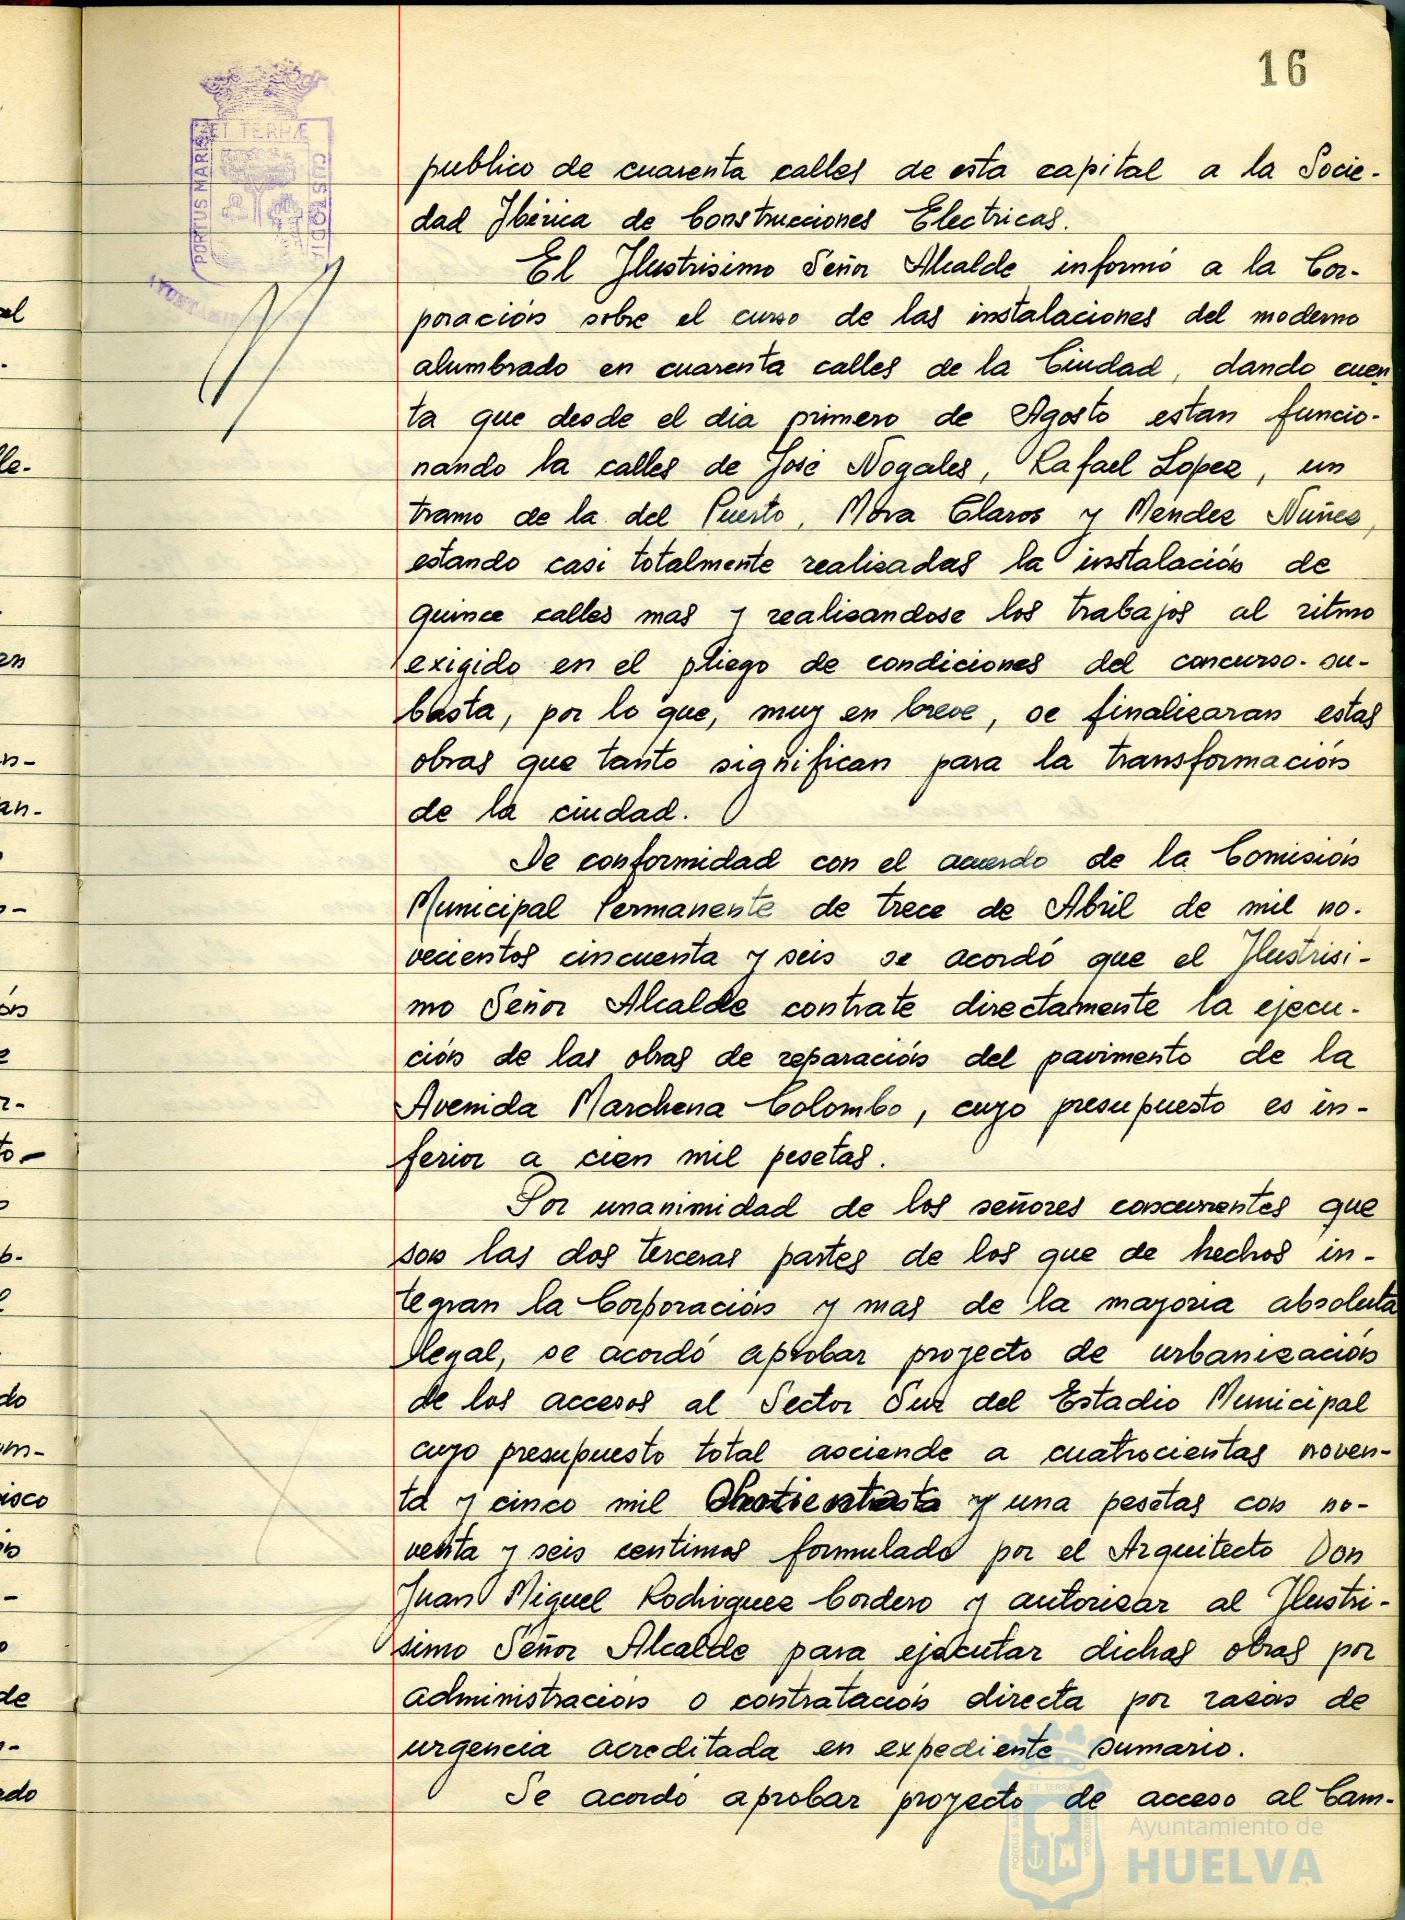 16
ET TERRÆ
PORTUS MARIS
CUSTODIA
publico de cuarenta calles de esta capital a la Socie-
dad Ibérica de Construcciones Electricas.
El Ilustrisimo Señor Alcalde informó a la Cor-
poración sobre el curso de las instalaciones del moderno
alumbrado en cuarenta calles de la Ciudad, dando cuen
ta que desde el dia primero de Agosto estan funcio-
nando la calles de José Nogales, Rafael Lopez, un
tramo de la del Puerto, Mora Claros y Mendez Nuñez,
estando casi totalmente realizadas la instalación de
quince calles mas y realizandose los trabajos al ritmo
exigido en el pliego de condiciones del concurso-su-
basta, por lo que, muy en breve, se finalizaran estas
obras que tanto significan para la transformación
de la ciudad.
De conformidad con el acuerdo de la Comisión
Municipal Permanente de trece de Abril de mil no-
vecientos cincuenta y seis se acordó que el Ilustrisi-
mo Señor Alcalde contrate directamente la ejecu-
ción de las obras de reparación del pavimento de la
Avenida Marchena Colombo, cuyo presupuesto es in-
ferior a cien mil pesetas.
Por unanimidad de los señores concurrentes que
son las dos terceras partes de los que de hechos in-
tegran la Corporación y mas de la mayoria absoluta
legal, se acordó aprobar proyecto de urbanización
de los accesos al Sector Sur del Estadio Municipal
cuyo presupuesto total asciende a cuatrocientas noven-
ta y cinco mil y una pesetas con no-
venta y seis centimos formulado por el Arquitecto Don
Juan Miguel Rodriguez Cordero y autorizar al Ilustri-
simo Señor Alcalde para ejecutar dichas obras por
administración o contratación directa por razón de
urgencia acreditada en expediente sumario.
Se acordó aprobar proyecto de acceso al Cam-
Ayuntamiento de
HUELVA